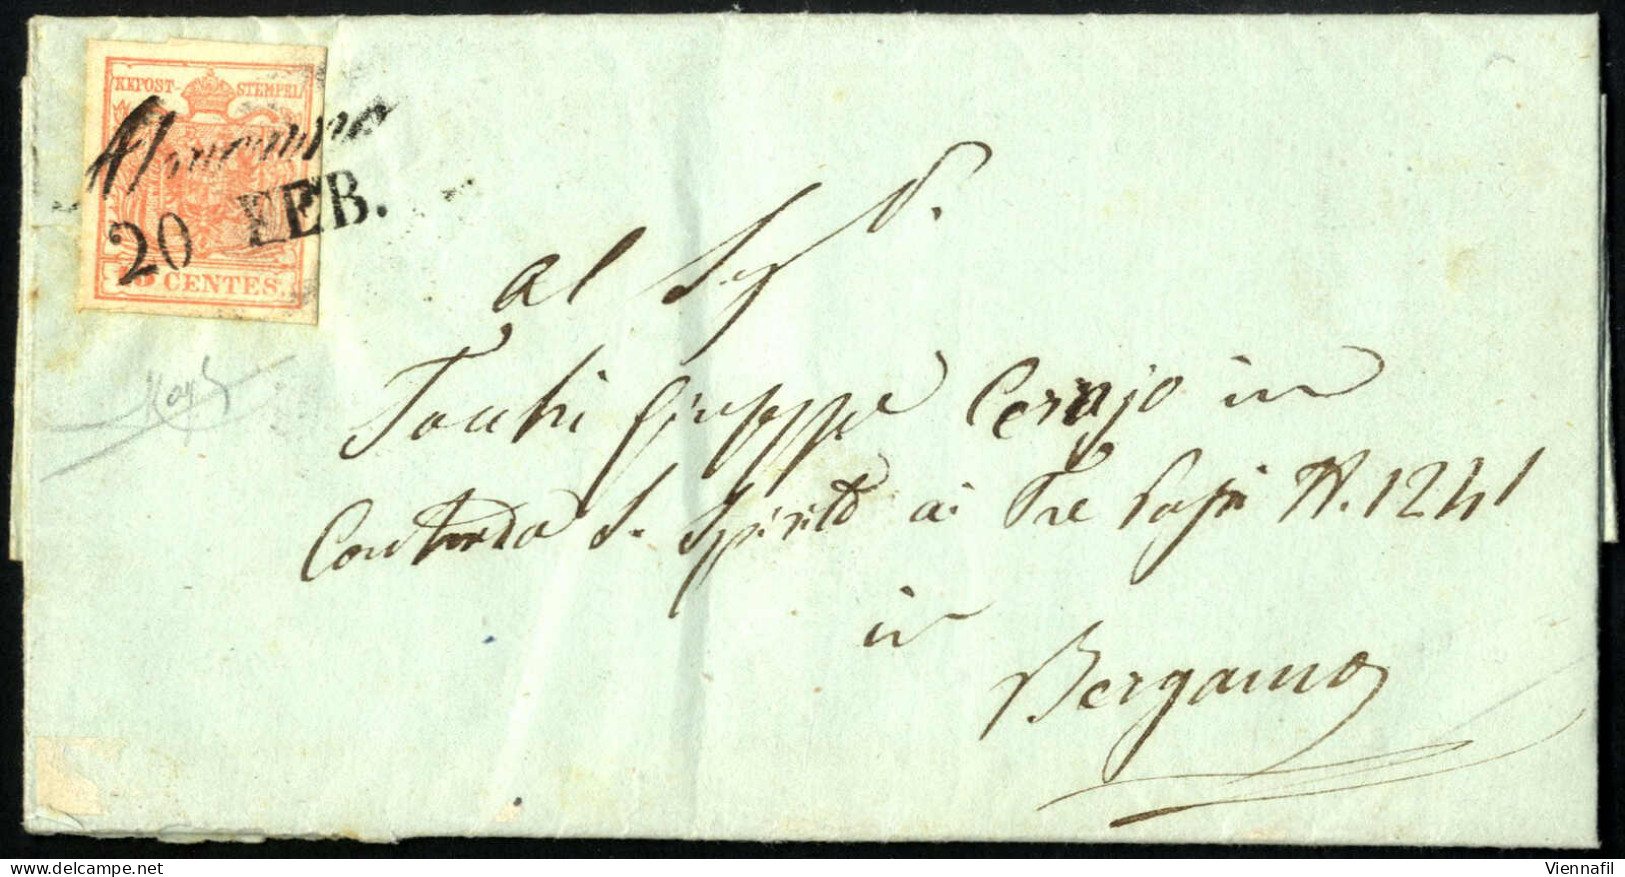 KKPOST-STEMPEL
Almenno
20 FEB.
15 CENTES.
al Sig.r
Giuseppe Cerajo in
Contrada S. Spirito ai Tre Passi N. 1241
in
Bergamo
Viennafil